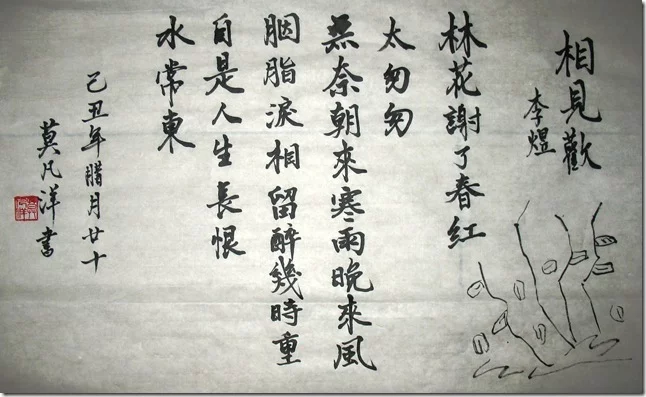 相見歡
李煜
林花謝了春紅
太匆匆
無奈朝來寒雨晚來風
胭脂淚相留醉幾時重
自是人生長恨
水常東
己丑年腊月廿十
莫凡洋書